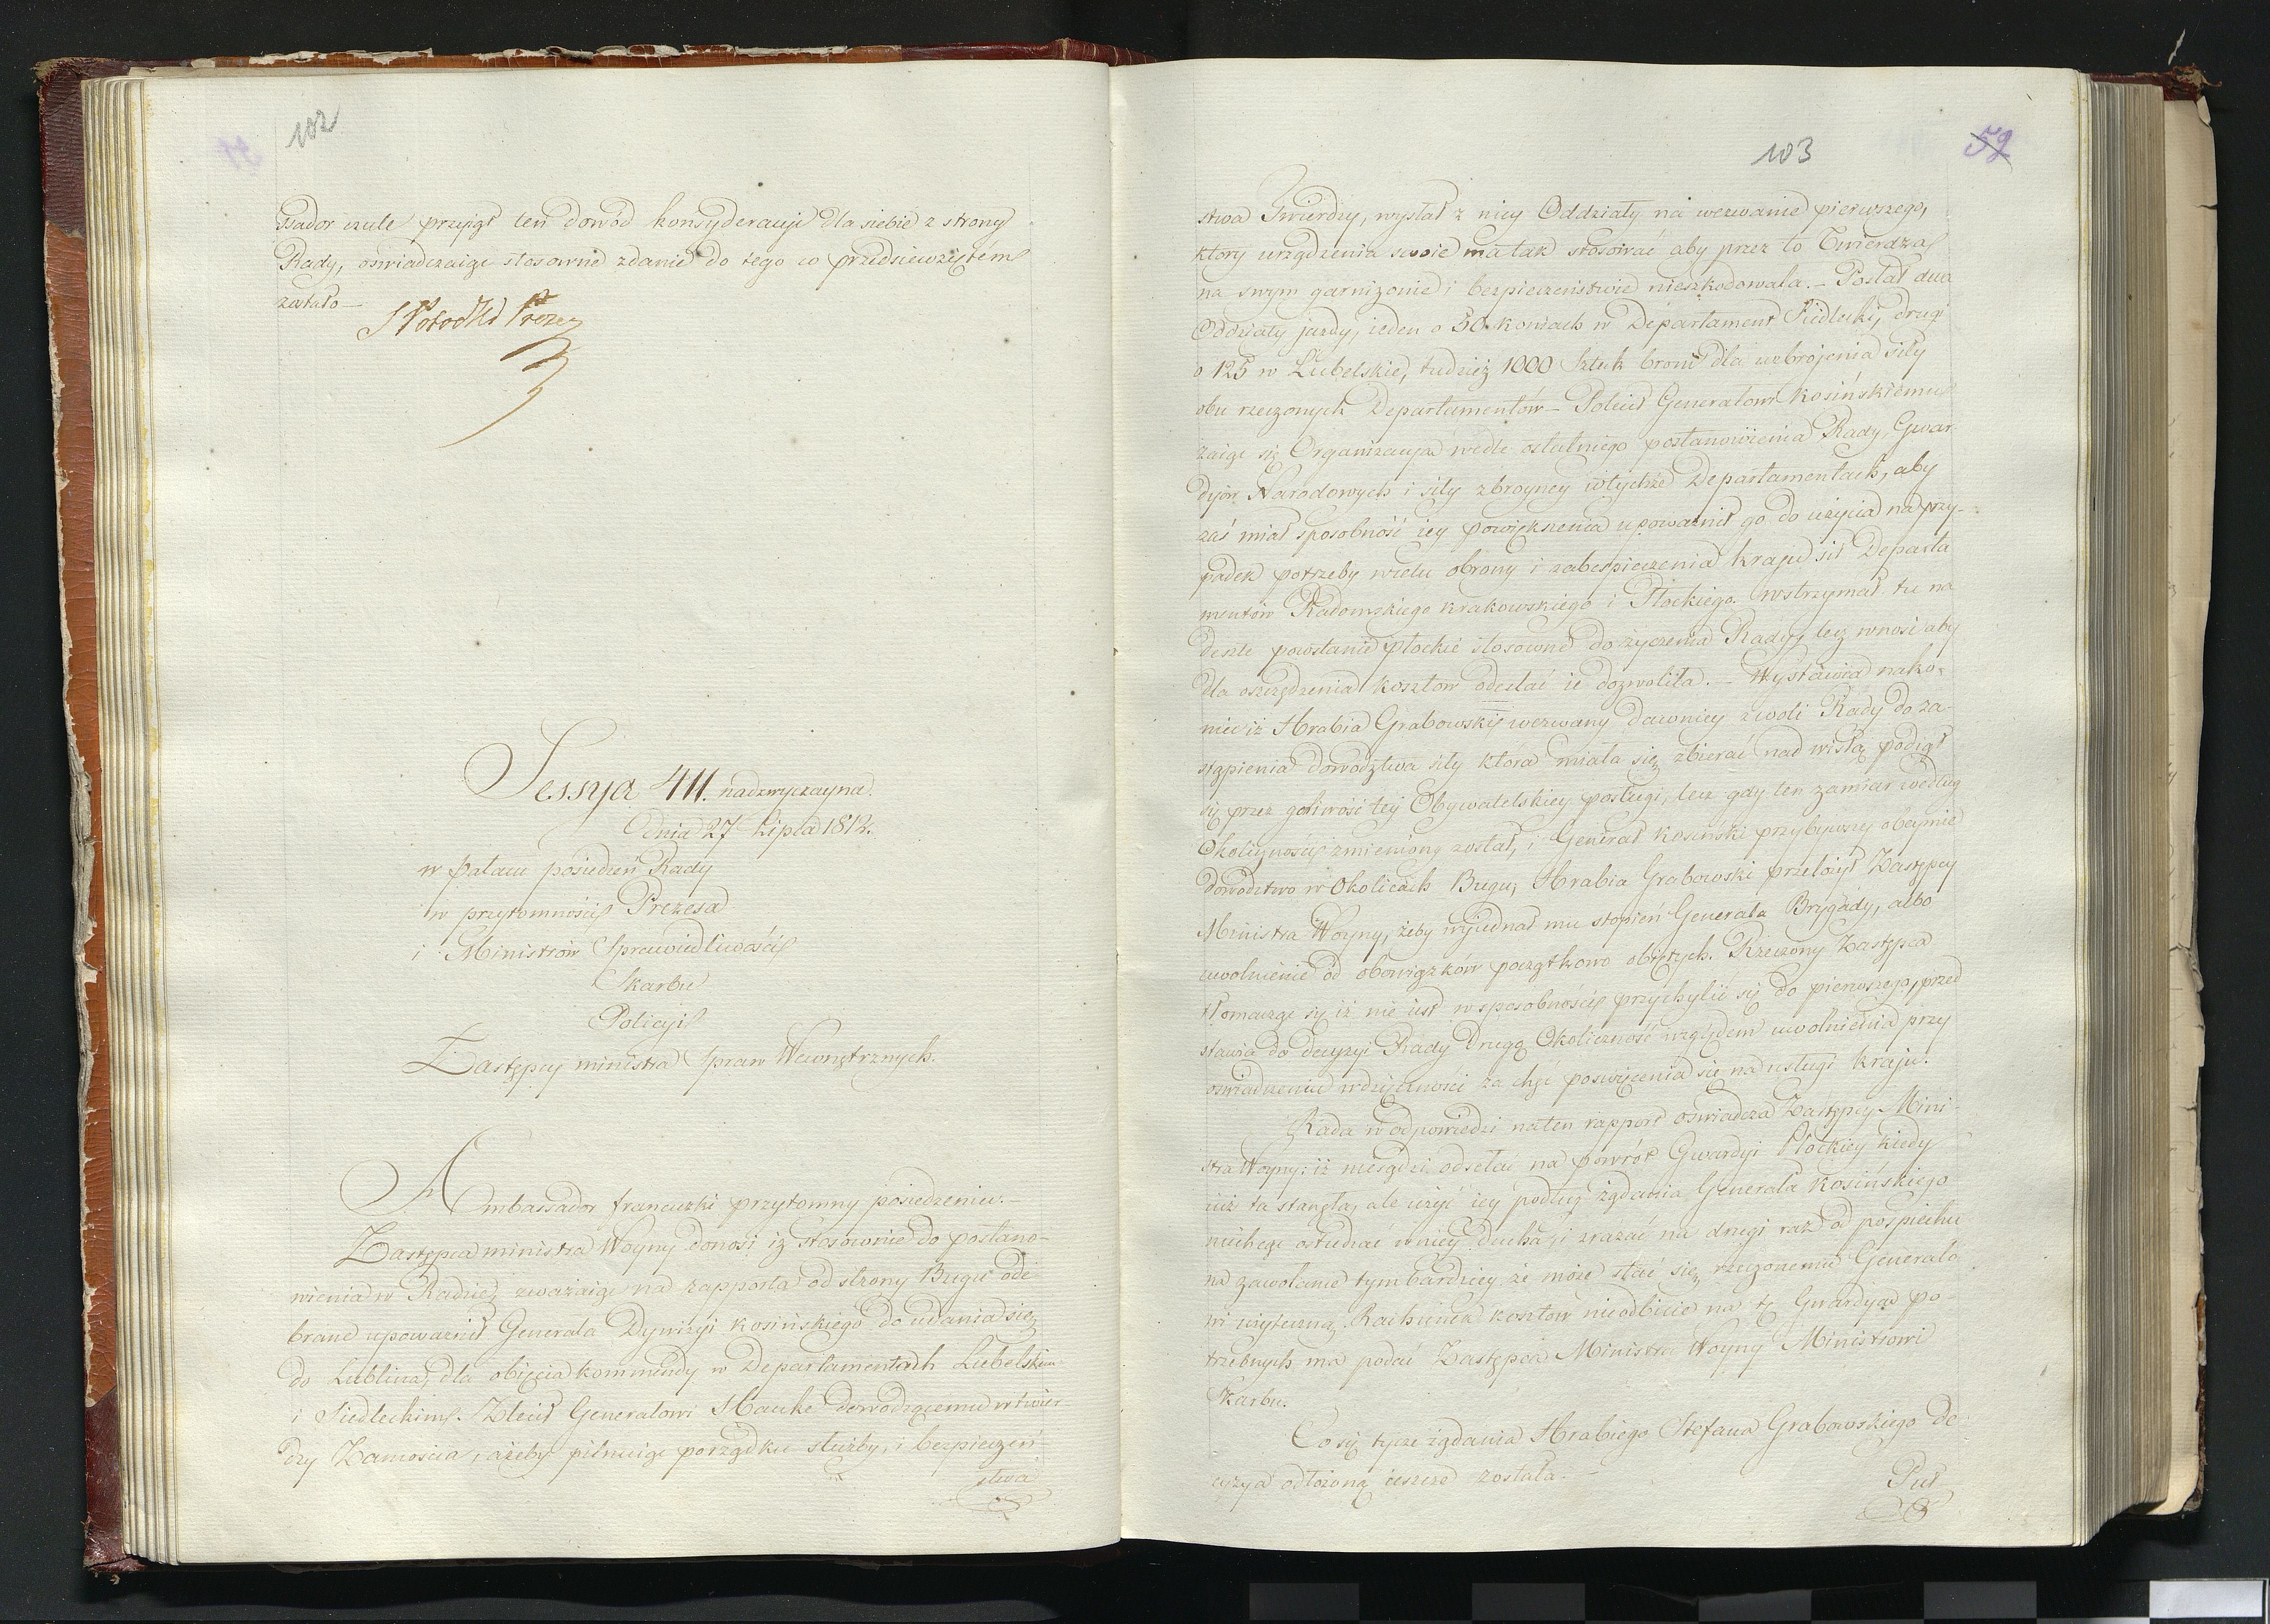 102
ssador czule przyjął ten dowód konsyderacyi dla siebie z strony
Rady, oświadczaiąc stosownie zdanie do tego co przedsiewziętém
zostało —
S Potocki Prezes
Sessya 411. nadzwyczayna.
Dnia 27 Lipca 1812.
w pałacu posiedzeń Rady
w przytomności Prezesa
i Ministrów Sprawiedliwości
Skarbu
Policyi
Zastępcy ministra Spraw Wewnętrznych.
Ambassador francuzki przytomny posiedzeniu. —
Zastępca ministra Woyny donosi iż stosownie do postano-
wienia w Radzie, zważaiąc na rapporta od strony Bugu ode-
brane upoważnił Generała Dywizyi Kosińskiego do udania się
do Lublina, dla obięcia kommendy w Departamentach Lubelskim
i Siedleckim. Zlecił Generałowi Hauke dowodzącemu w twier-
dzy Zamościa, ażeby pilnuiąc porządku służby, i bezpieczeń-
stwa
103
52
stwa Twierdzy, wysłał z niey Oddziały na wezwanie pierwszego,
ktory urządzenia swoie ma tak stosować aby przez to Twierdza
na swym garnizonie i bezpieczeństwie nieszkodowała. — Posłał dwa
Oddziały jazdy, ieden o 50 koniach w Departament Siedlecki, drugi
o 125 w Lubelskie, tudzież 1000 Sztuk broni dla uzbrojenia siły
obu rzeczonych Departamentów — Polecił Generałowi Kosińskiemu
zaiąć się Organizacyą wedle ostatniego postanowienia Rady, Gwar-
dyów Narodowych i siły zbroyney w tychże Departamentach, aby
zaś miał sposobność iey powiększenia upoważnił go do użycia na przy-
padek potrzeby wcelu obrony i zabespieczenia kraju sił Departa
mentów Radomskiego krakowskiego i Płockiego. Wstrzymał tu na
deszłe powstanie płockie stosownie do życzenia Rady, lecz wnosi aby
dla oszczędzenia kosztow odesłać ie dozwoliła. — Wystawia nako-
niec iż Hrabia Grabowski wezwany dawniey z woli Rady do za-
stąpienia dowodztwa siły która miała się zbierać nad wisłą podiął
się przez gorliwość tey Obywatelskiey posługi, lecz gdy ten zamiar według
Okolicznosci zmieniony został, i Generał Kosiński przybywszy obeymie
dowodztwo w Okolicach Bugu, Hrabia Grabowski przełożył Zastępcy
Ministra Woyny, żeby wyiednał mu stopień Generała Brygady, albo
uwolnienie od obowiązków początkowo obiętych. Rzeczony Zastępca
tłomacząc się iż nie iest w sposobności przychylić się do pierwszego, przed
stawia do decyzyi Rady Drugą Okoliczność względem uwolnienia przy
oswiadczeniu wdzięczności za chęć poswięcenia się na usługi kraju.
Rada w odpowiedzi na ten rapport oświadcza Zastępcy Mini-
stra Woyny: iż niesądzi odsełać na powrót Gwardyi Płockiey kiedy
iuż ta stanęła, ale użyć iey podług żądania Generała Kosińskiego
niechcąc ostudzać w niey ducha, i zrażać na drugi raz od pospiechu
na zawołanie tym bardziey że może stać się rzeczonemu Generało
wi użyteczną. Rachunek kosztow nieodbicie na tę Gwardyą po-
trzebnych ma podać Zastępca Ministra Woyny Ministrowi
Skarbu.
Co się tycze żądania Hrabiego Stefana Grabowskiego de-
cyzya odłożoną ieszcze została. —
Puł